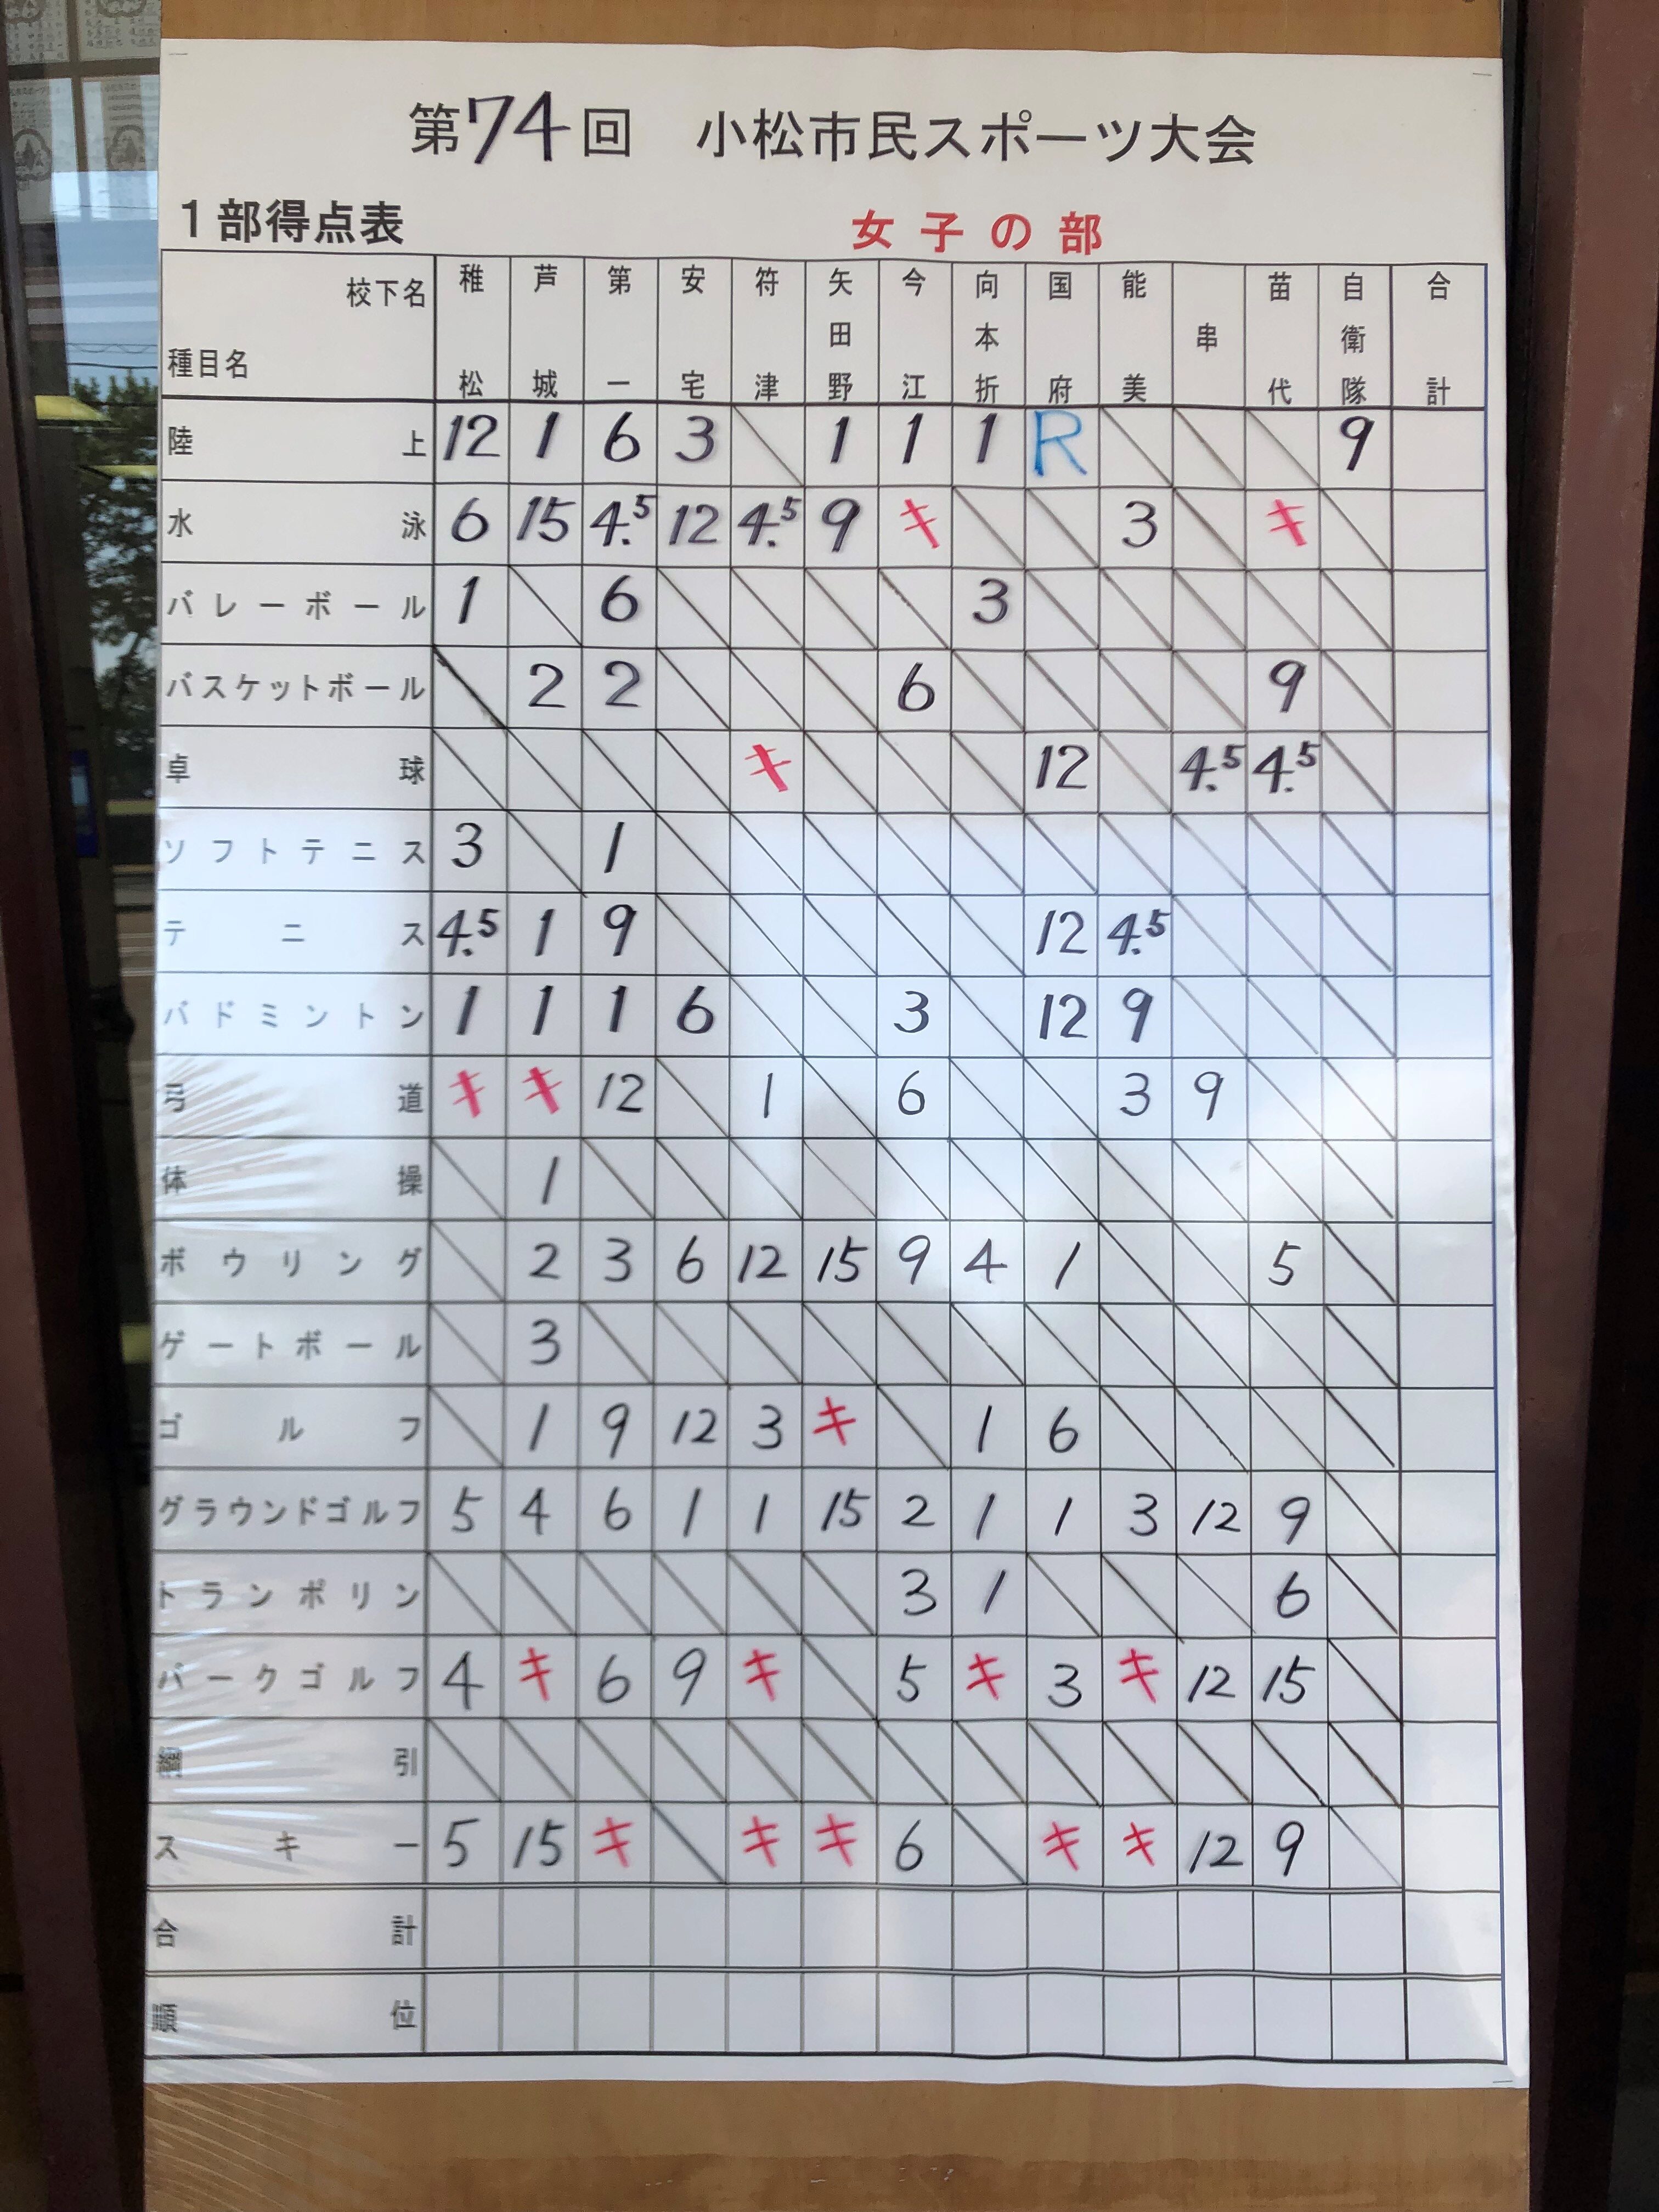 第74回 小松市民スポーツ大会
1部得点表 女子の部
校下名 種目名 稚松 芦城 第一 安宅 符津 矢田野 今江 向本折 国府 能美 串 苗代 自衛隊 合計
陸上 12 1 6 3 1 1 1 R 9
水泳 6 15 4.5 12 4.5 9 キ 3 キ
バレーボール 1 6 3
バスケットボール 2 2 6 9
卓球 キ 12 4.5 4.5
ソフトテニス 3 1
テニス 4.5 1 9 12 4.5
バドミントン 1 1 1 6 3 12 9
弓道 キ キ 12 1 6 3 9
体操 1
ボウリング 2 3 6 12 15 9 4 1 5
ゲートボール 3
ゴルフ 1 9 12 3 キ 1 6
グラウンドゴルフ 5 4 6 1 1 15 2 1 1 3 12 9
トランポリン 3 1 6
パークゴルフ 4 キ 6 9 キ 5 キ 3 キ 12 15
綱引
スキー 5 15 キ キ キ 6 キ キ 12 9
合計
順位